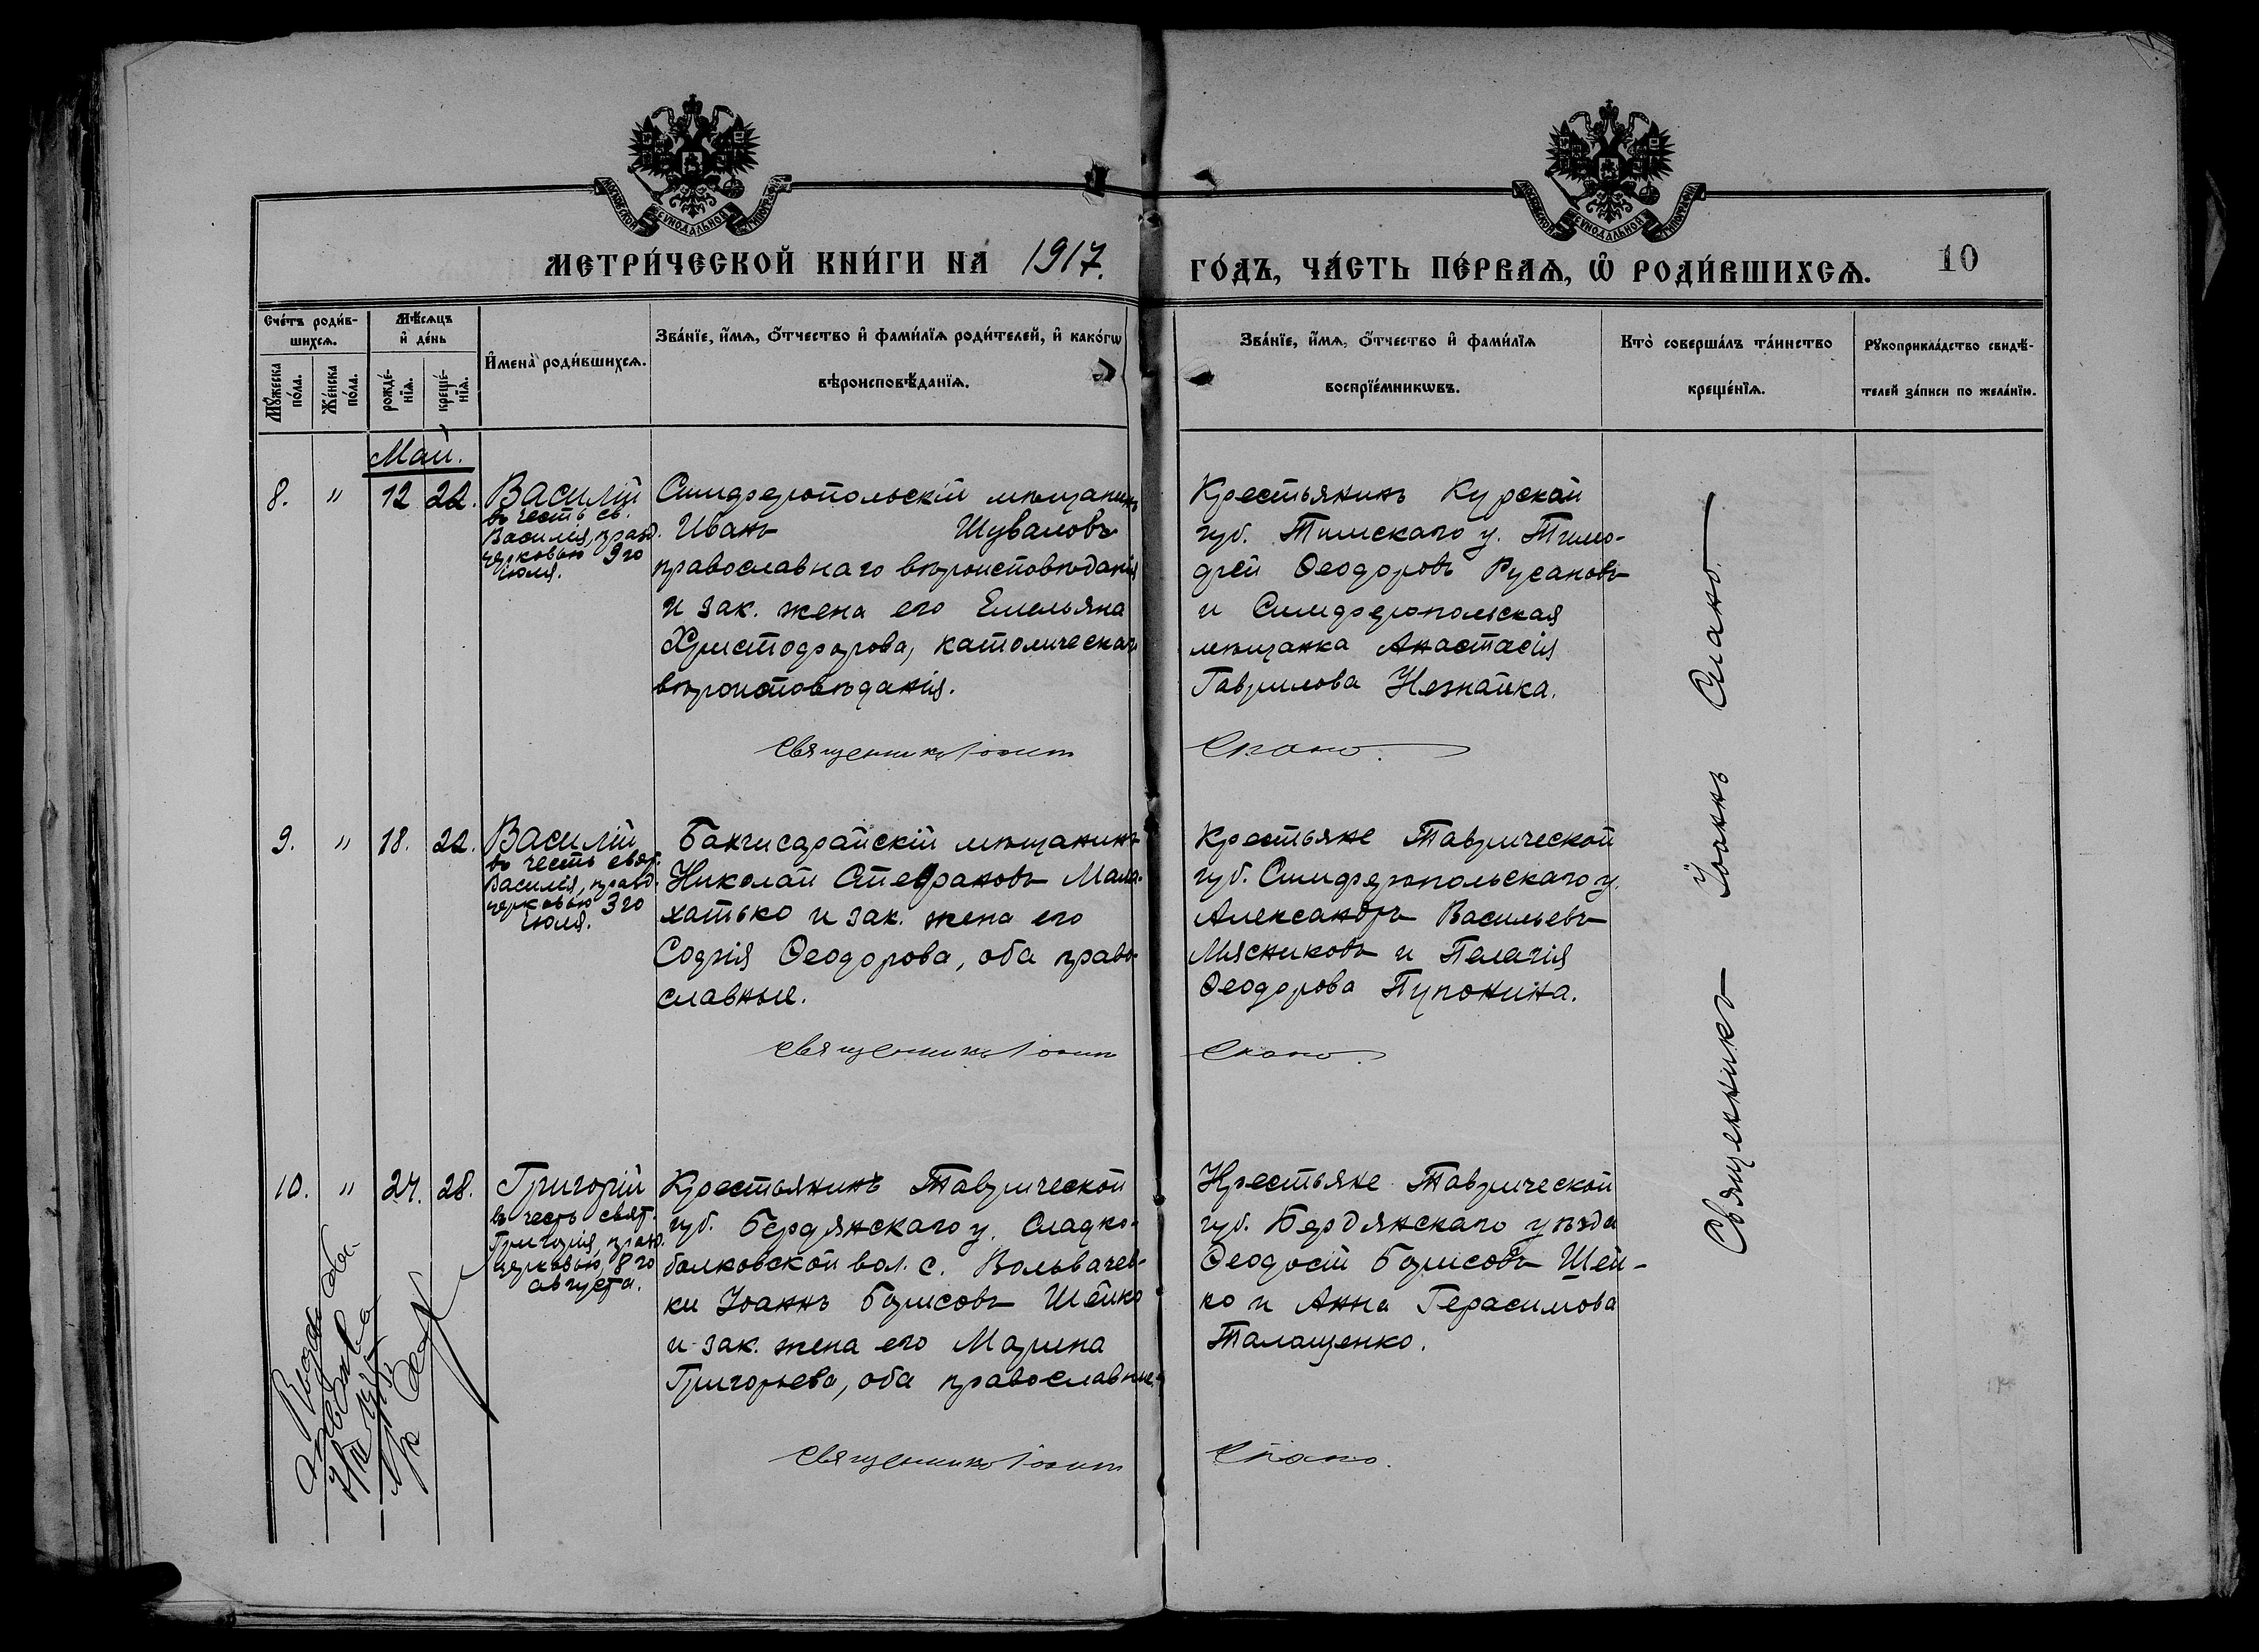 МОСКОВСКОЙ СѴНОДАЛЬНОЙ ТИПОГРАФІИ
МОСКОВСКОЙ СѴНОДАЛЬНОЙ ТИПОГРАФІИ
МЕТРИ́ЧЕСКОЙ КНИ́ГИ НА 1917.
ГО́ДЪ, ЧА́СТЬ ПЕ́РВАѦ, Ѡ҆ РОДИ́ВШИХСѦ. 10
Сче́тъ роди́в-
шихсѧ.
Мꙋ́жеска по́ла.
Же́нска по́ла.
Мѣ́сѧцъ
и҆ де́нь
рожде́-
нїѧ.
креще́-
нїѧ.
И҆мена̀ роди́вшихсѧ.
Зва́нїе, и҆́мѧ, ѻ҆́тчество и҆ фами́лїѧ роди́телей, и҆ како́гѡ
вѣроисповѣ́данїѧ.
Зва́нїе, и҆́мѧ, ѻ҆́тчество и҆ фами́лїѧ
воспрїе́мникѡвъ.
Кто̀ соверша́лъ та́инство
креще́нїѧ.
Рꙋкоприкла́дство свидѣ́-
телей за́писи по жела́нїю.
Май.
8. " 12 22.
Василій
въ честь св.
Василія, празд.
церковью 9го
июля.
Симферопольскій мѣщанинъ
Иванъ Шуваловъ
православнаго вѣроисповѣданія
и зак. жена его Емельяна
Христофорова, католическаго
вѣроисповѣданія.
Священникъ Іоаннъ
Крестьянинъ Курской
губ. Тимскаго у. Тимо-
фей Ѳеодоровъ Русановъ
и Симферопольская
мѣщанка Анастасія
Гаврилова Незнайка.
Спано.
9. " 18. 22.
Василій
въ честь свят.
Василія, празд.
церковью 3го
июля.
Бахчисарайскій мѣщанинъ
Николай Стефановъ Мала-
хатько и зак. жена его
Софія Ѳеодорова, оба право-
славные.
Священникъ Іоаннъ
Крестьяне Таврической
губ. Симферопольскаго у.
Александръ Васильевъ
Мясниковъ и Пелагія
Ѳеодорова Пупонина.
Спано.
10. " 24. 28.
Григорій
въ честь свят.
Григорія, празд.
церковью, 8го
августа.
Крестьянинъ Таврической
губ. Бердянскаго у. Сладко-
балковской вол. с. Вольвачев-
ки Іоаннъ Борисовъ Шейко
и зак. жена его Марина
Григорьева, оба православные.
Священникъ Іоаннъ
Крестьяне Таврической
губ. Бердянскаго уѣзда
Ѳеодосій Борисовъ Шей-
ко и Анна Герасимова
Талащенко.
Спано.
Священникъ Іоаннъ Спано.